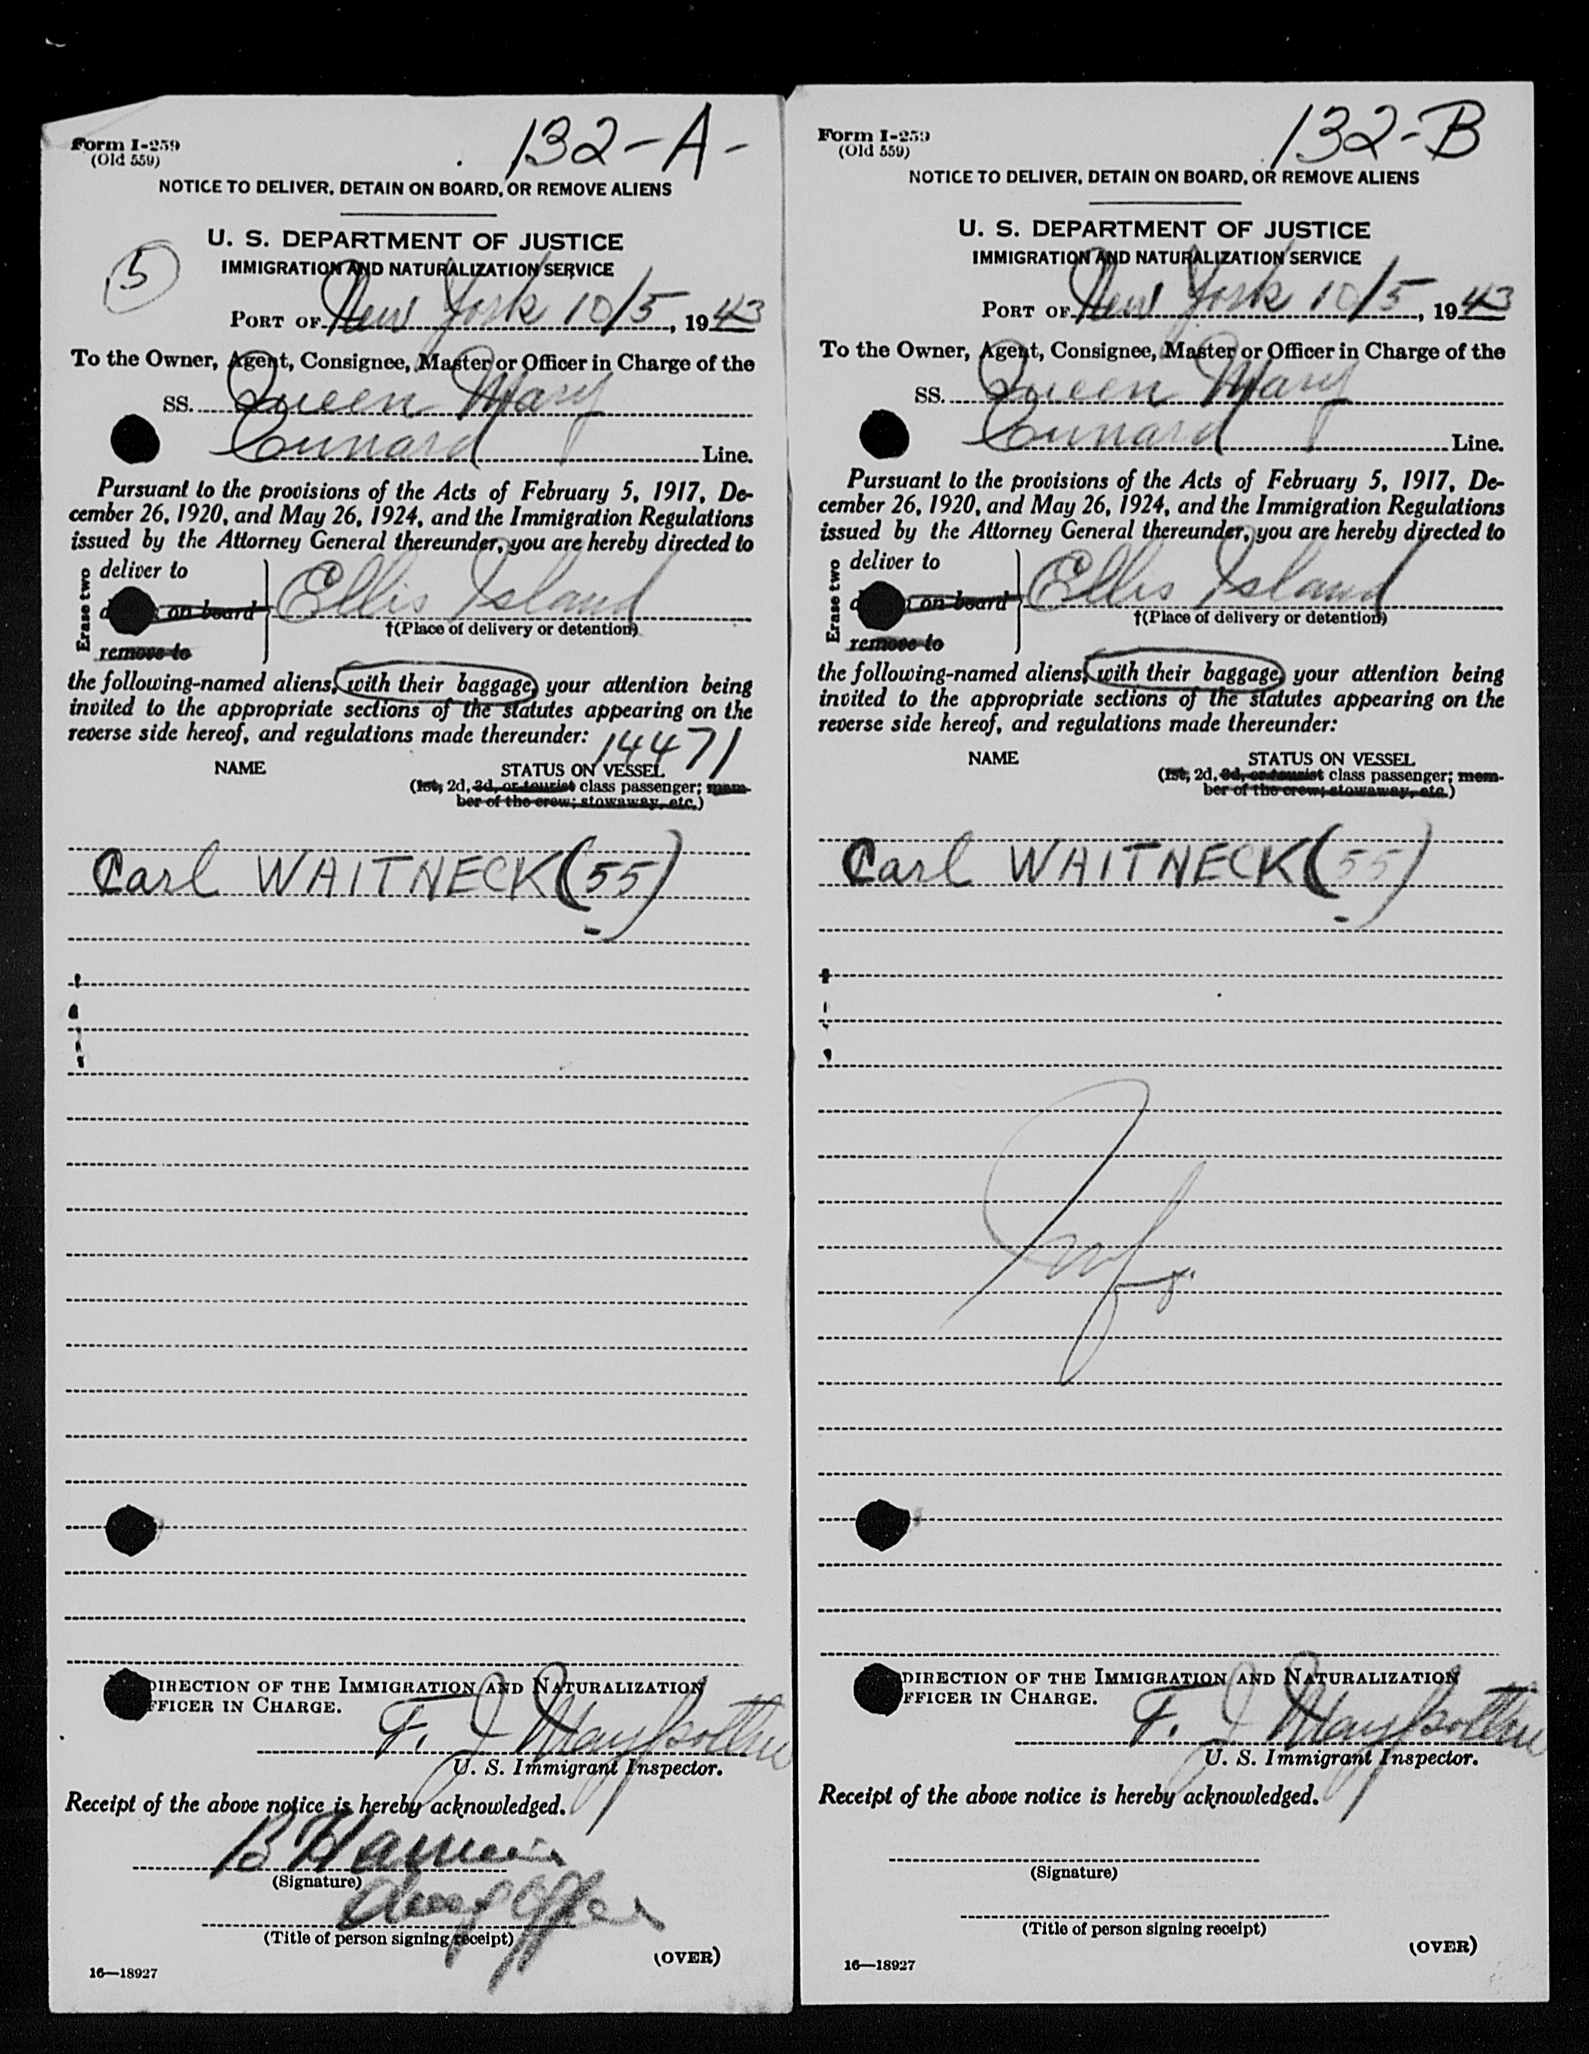 Form I-259
(Old 559)
132-A-
NOTICE TO DELIVER, DETAIN ON BOARD, OR REMOVE ALIENS
U. S. DEPARTMENT OF JUSTICE
5
IMMIGRATION AND NATURALIZATION SERVICE
PORT OF New York 10/5, 1943
To the Owner, Agent, Consignee, Master or Officer in Charge of the
SS. Queen Mary
Cunard Line.
Pursuant to the provisions of the Acts of February 5, 1917, De-
cember 26, 1920, and May 26, 1924, and the Immigration Regulations
issued by the Attorney General thereunder, you are hereby directed to
Erase two
deliver to
on board
remove to
Ellis Island
†(Place of delivery or detention)
the following-named aliens, with their baggage, your attention being
invited to the appropriate sections of the statutes appearing on the
reverse side hereof, and regulations made thereunder:
14471
NAME
STATUS ON VESSEL
(1st, 2d, 3d, or tourist class passenger; mem-
ber of the crew; stowaway, etc.)
Carl WAITNECK (55)
DIRECTION OF THE IMMIGRATION AND NATURALIZATION
FFICER IN CHARGE.
F. J.
U. S. Immigrant Inspector.
Receipt of the above notice is hereby acknowledged.
B
(Signature)
(Title of person signing receipt)
(OVER)
16—18927
Form I-259
(Old 559)
132-B
NOTICE TO DELIVER, DETAIN ON BOARD, OR REMOVE ALIENS
U. S. DEPARTMENT OF JUSTICE
IMMIGRATION AND NATURALIZATION SERVICE
PORT OF New York 10/5, 1943
To the Owner, Agent, Consignee, Master or Officer in Charge of the
SS. Queen Mary
Cunard Line.
Pursuant to the provisions of the Acts of February 5, 1917, De-
cember 26, 1920, and May 26, 1924, and the Immigration Regulations
issued by the Attorney General thereunder, you are hereby directed to
Erase two
deliver to
on board
remove to
Ellis Island
†(Place of delivery or detention)
the following-named aliens, with their baggage, your attention being
invited to the appropriate sections of the statutes appearing on the
reverse side hereof, and regulations made thereunder:
NAME
STATUS ON VESSEL
(1st, 2d, 3d, or tourist class passenger; mem-
ber of the crew; stowaway, etc.)
Carl WAITNECK (55)
DIRECTION OF THE IMMIGRATION AND NATURALIZATION
FFICER IN CHARGE.
F. J.
U. S. Immigrant Inspector.
Receipt of the above notice is hereby acknowledged.
(Signature)
(Title of person signing receipt)
(OVER)
16—18927